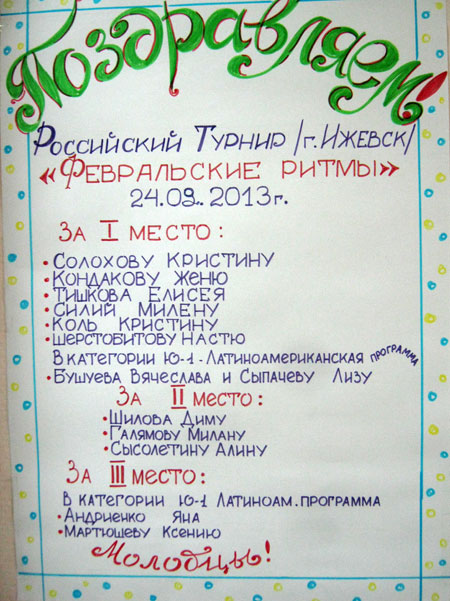 Поздравляем!
Российский Турнир /г. Ижевск/
«Февральские ритмы»
24.02.2013г.
За I место:
• Солохову Кристину
• Кондакову Женю
• Тишкова Елисея
• Силий Милену
• Коль Кристину
• Шерстобитову Настю
В категории Ю-1-Латиноамериканская программа
• Бушуева Вячеслава и Сыпачеву Лизу
За II место:
• Шилова Диму
• Галямову Милану
• Сысолетину Алину
За III место:
В категории Ю-1 Латиноам. программа
• Андриенко Яна
• Мартюшеву Ксению
Молодцы!